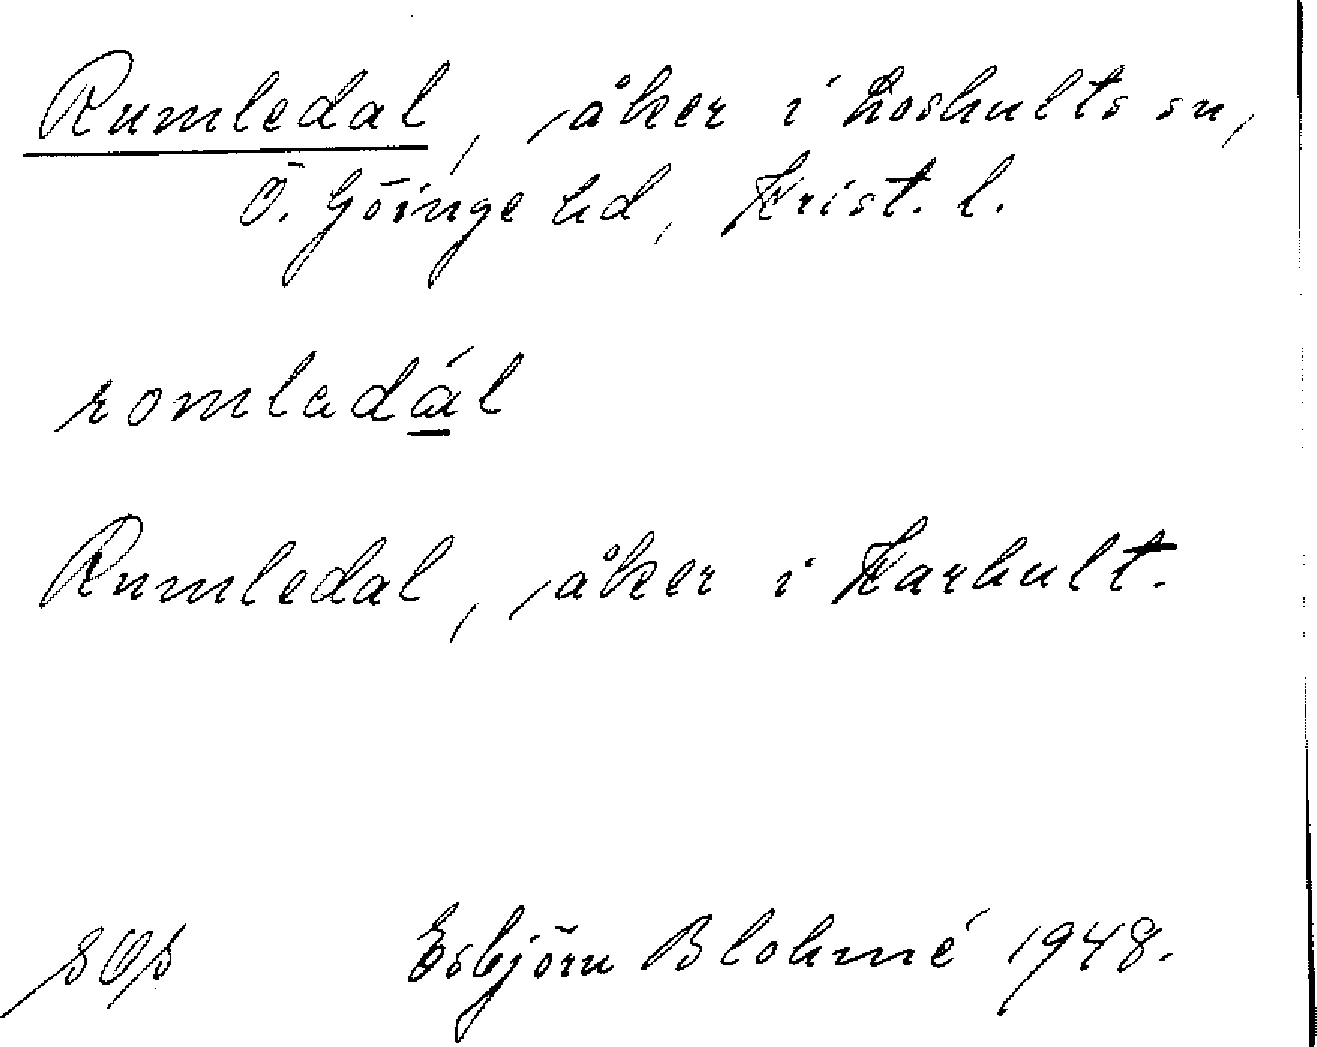 Rumledal, åker i Loshults sn,
Ö. Göinge hd, Krist. l.
romladál
Rumledal, åker i Karhult.
Esbjörn Blohmé 1948.